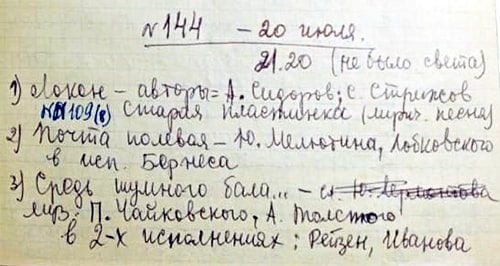 №144 – 20 июля.
21.20 (не было света)
1) Локон – авторы = А. Сидоров; С. Стрижов
№109(8) Старая пластинка (лирич. песня)
2) Почта полевая – Ю. Милютина, Лобковского
в исп. Бернеса
3) Средь шумного бала... – сл. Ю. Лермонтова
муз. П. Чайковского, А. Толстого
в 2-х исполнениях: Рейзен, Иванова